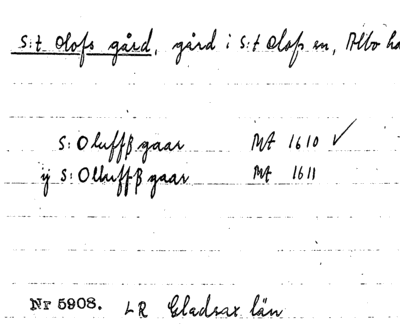 S:t Olofs gård, gård i S:t Olofs sn, Albo hd
S: Oluffß gaar Mt 1610 ✓
ÿ S: Olluffß gaar Mt 1611
Nr 5908. LR Gladsax län